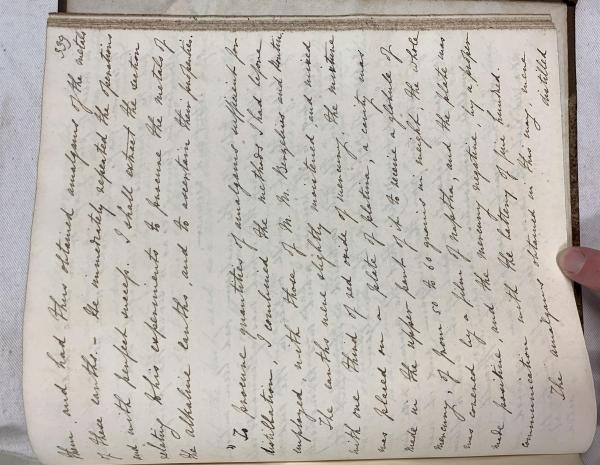 339
them and had thus obtained amalgams of the metals
of these earths. – He immediately repeated the operations
and with perfect success. I shall extract the section
relating to his experiments to procure the metals of
the alkaline earths, and to ascertain their properties.
"To procure quantities of amalgams sufficient for
distillation, I combined the methods I had before
employed, with those of M. M. Berzelius and Pontin.
The earths were slightly moistened, and mixed
with one third of red oxide of mercury, the mixture
was placed on a plate of platina, a cavity was
made in the upper part of it to receive a globule of
mercury, of from 50 to 60 grains in weight, the whole
was covered by a film of naptha, and the plate was
made positive, and the mercury negative, by a proper
communication with the battery of five hundred.
The amalgams obtained in this way, were
distilled